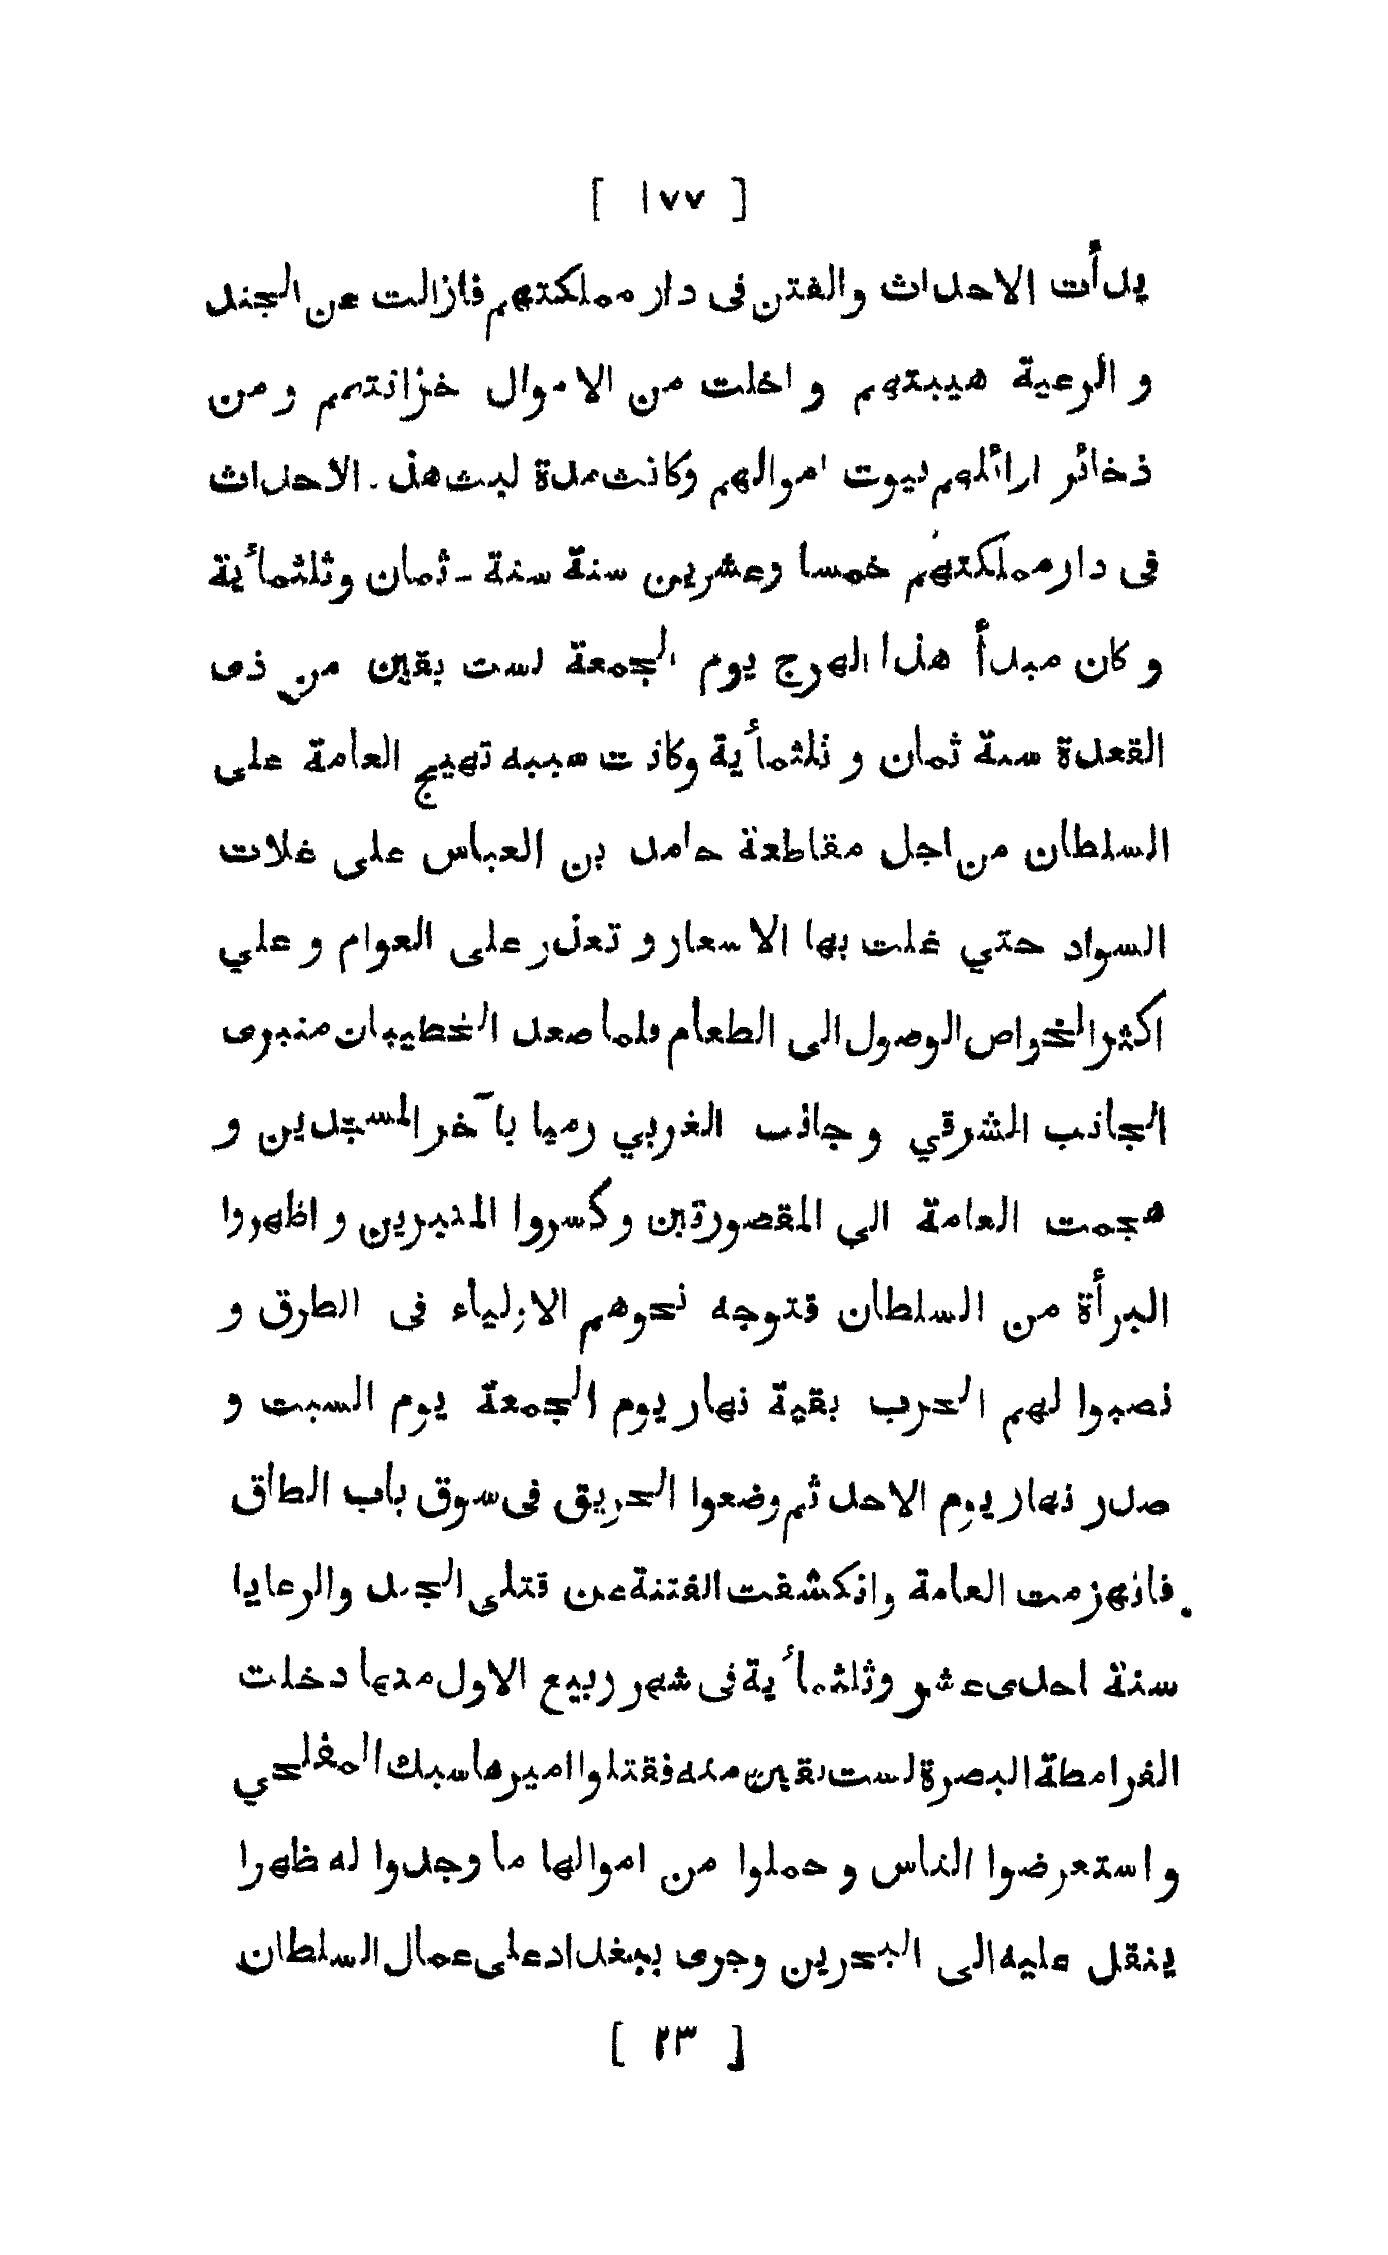 [ ١٧٧ ]
بدأت الاحداث والفتن فى دار مملكتهم فازالت عن الجند
و الرعية هيبتهم و اخلت من الاموال خزانتهم و من
ذخائر ارائلهم بيوت اموالهم وكانت مدة لبث هذه الاحداث
فى دار مملكتهم خمسا وعشرين سنة سنة - ثمان وثلثمأية
و كان مبدأ هذا الهرج يوم الجمعة لست بقين من ذى
القعدة سنة ثمان و ثلثمأية وكانت سببه تهيج العامة على
السلطان من اجل مقاطعة حامد بن العباس على غلات
السواد حتي غلت بها الاسعار و تعذر على العوام و علي
اكثر الخواص الوصول الى الطعام فلما صعد الخطيبان منبرى
الجانب المشرقي و جانب الغربي رميا بآخر المسجدين و
هجمت العامة الى المقصورتين و كسروا المنبرين و اظهروا
البرأة من السلطان فتوجه نحوهم الاولياء فى الطرق و
نصبوا لهم الحرب بقية نهار يوم الجمعة يوم السبت و
صدر نهار يوم الاحد ثم وضعوا الحريق فى سوق باب الطاق
فانهزمت العامة وانكشفت الفتنة عن قتلى الجند والرعايا
سنة احدى عشر وثلثمأية فى شهر ربيع الاول منها دخلت
القرامطة البصرة لست بقين منه فقتلوا اميرها سبك المفلحي
و استعرضوا الناس و حملوا من اموالها ما وجدوا له ظهرا
ينقل عليه الى البحرين وجرى ببغداد على عمال السلطان
[ ٢٣ ]